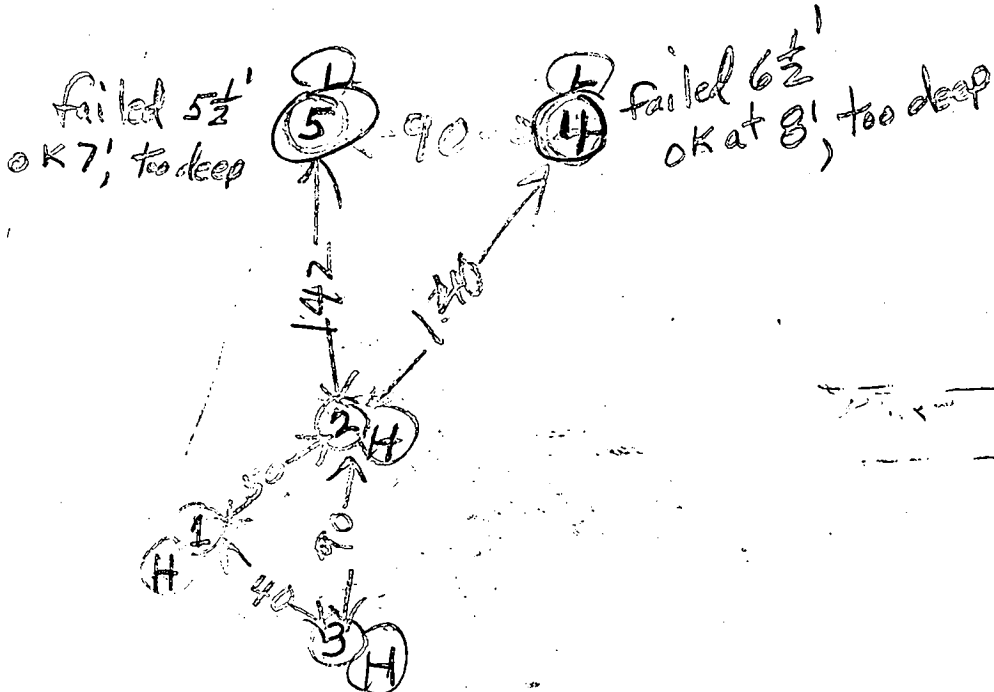 failed 5½'
ok 7', too deep
L
5
90
L
4
failed 6½'
ok at 8', too deep
142
140
2
H
50
1
H
60
40
3
H